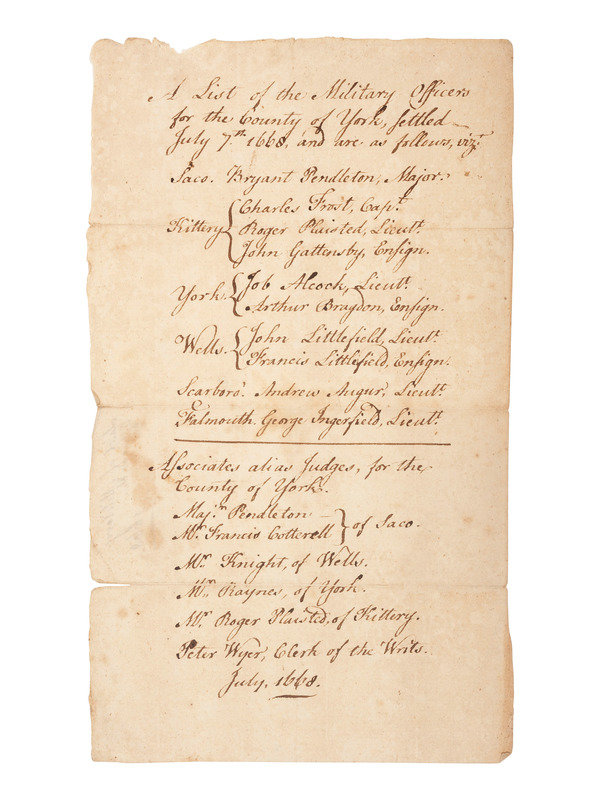 A List of the Military Officers
for the County of York, settled
July 7th 1668, and are as follows, vizt
Saco. Bryant Pendleton, Major.
Charles Frost, Capt.
Kittery Roger Plaisted, Lieutt.
John Gattensby, Ensign.
York. Job Alcock, Lieutt.
Arthur Bragdon, Ensign.
Wells. John Littlefield, Lieutt.
Francis Littlefield, Ensign.
Scarboro'. Andrew Augur, Lieutt.
Falmouth. George Ingerfield, Lieutt.
Associates alias Judges, for the
County of York.
Majr. Pendleton
Mr. Francis Cotterell of Saco.
Mr. Knight, of Wells.
Mr. Raynes, of York.
Mr. Roger Plaisted, of Kittery.
Peter Wyer, Clerk of the Writs.
July, 1668.